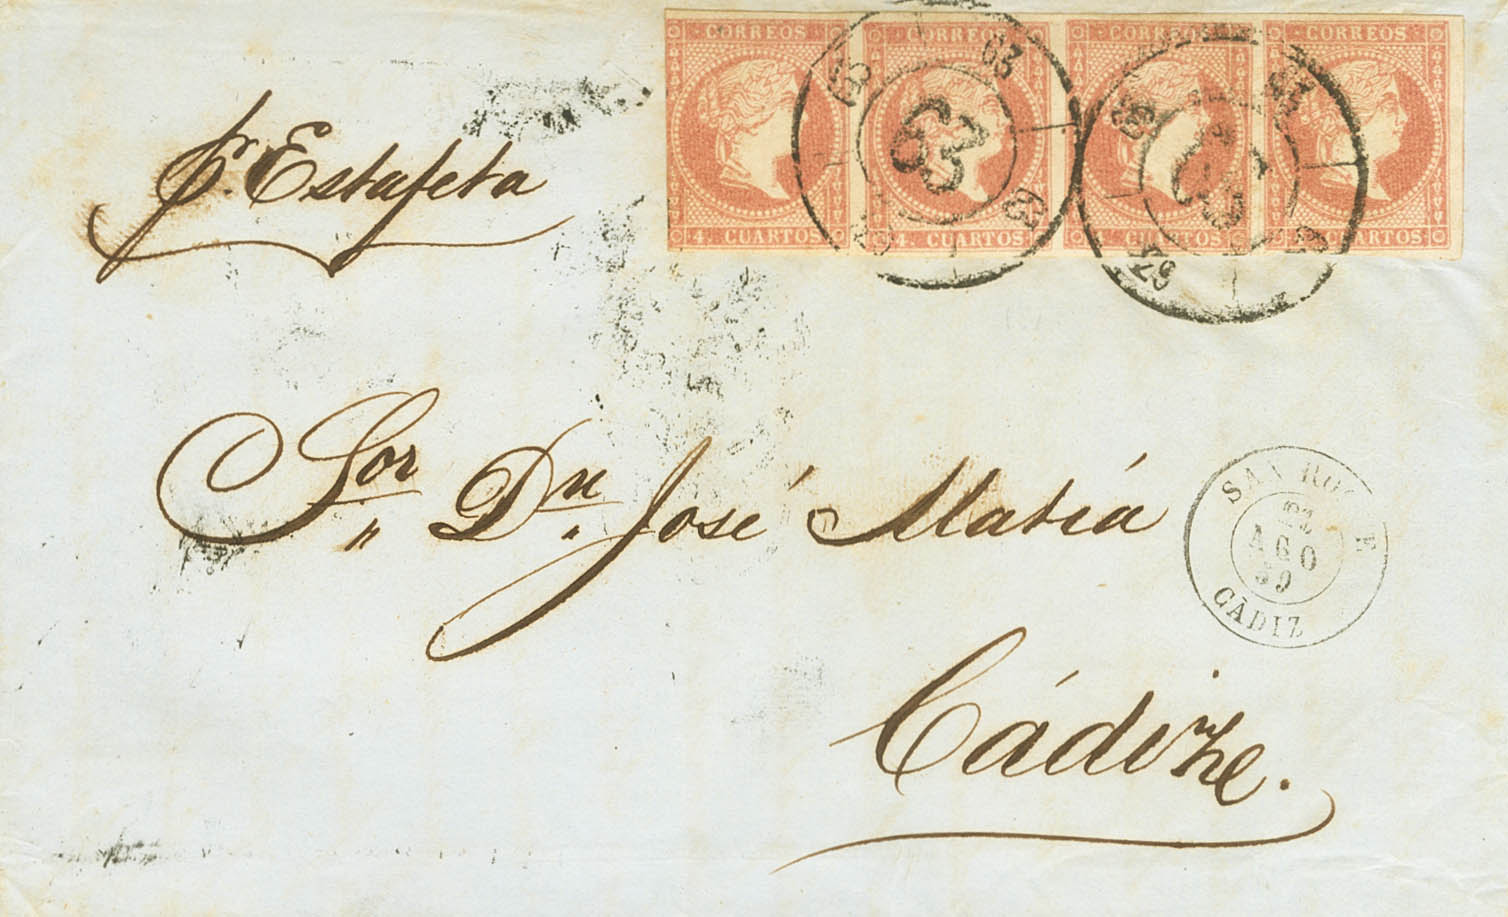 CORREOS CORREOS CORREOS CORREOS
4 CUARTOS 4 CUARTOS CUARTOS CUARTOS
63 63 63
63
pr. Estafeta
Sor Dn José Matiá
SAN ROQUE
AGO
59
CÁDIZ
Cádiz